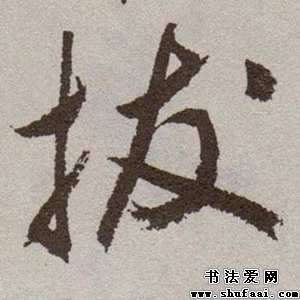 拔
书法爱网
www.shufaai.com